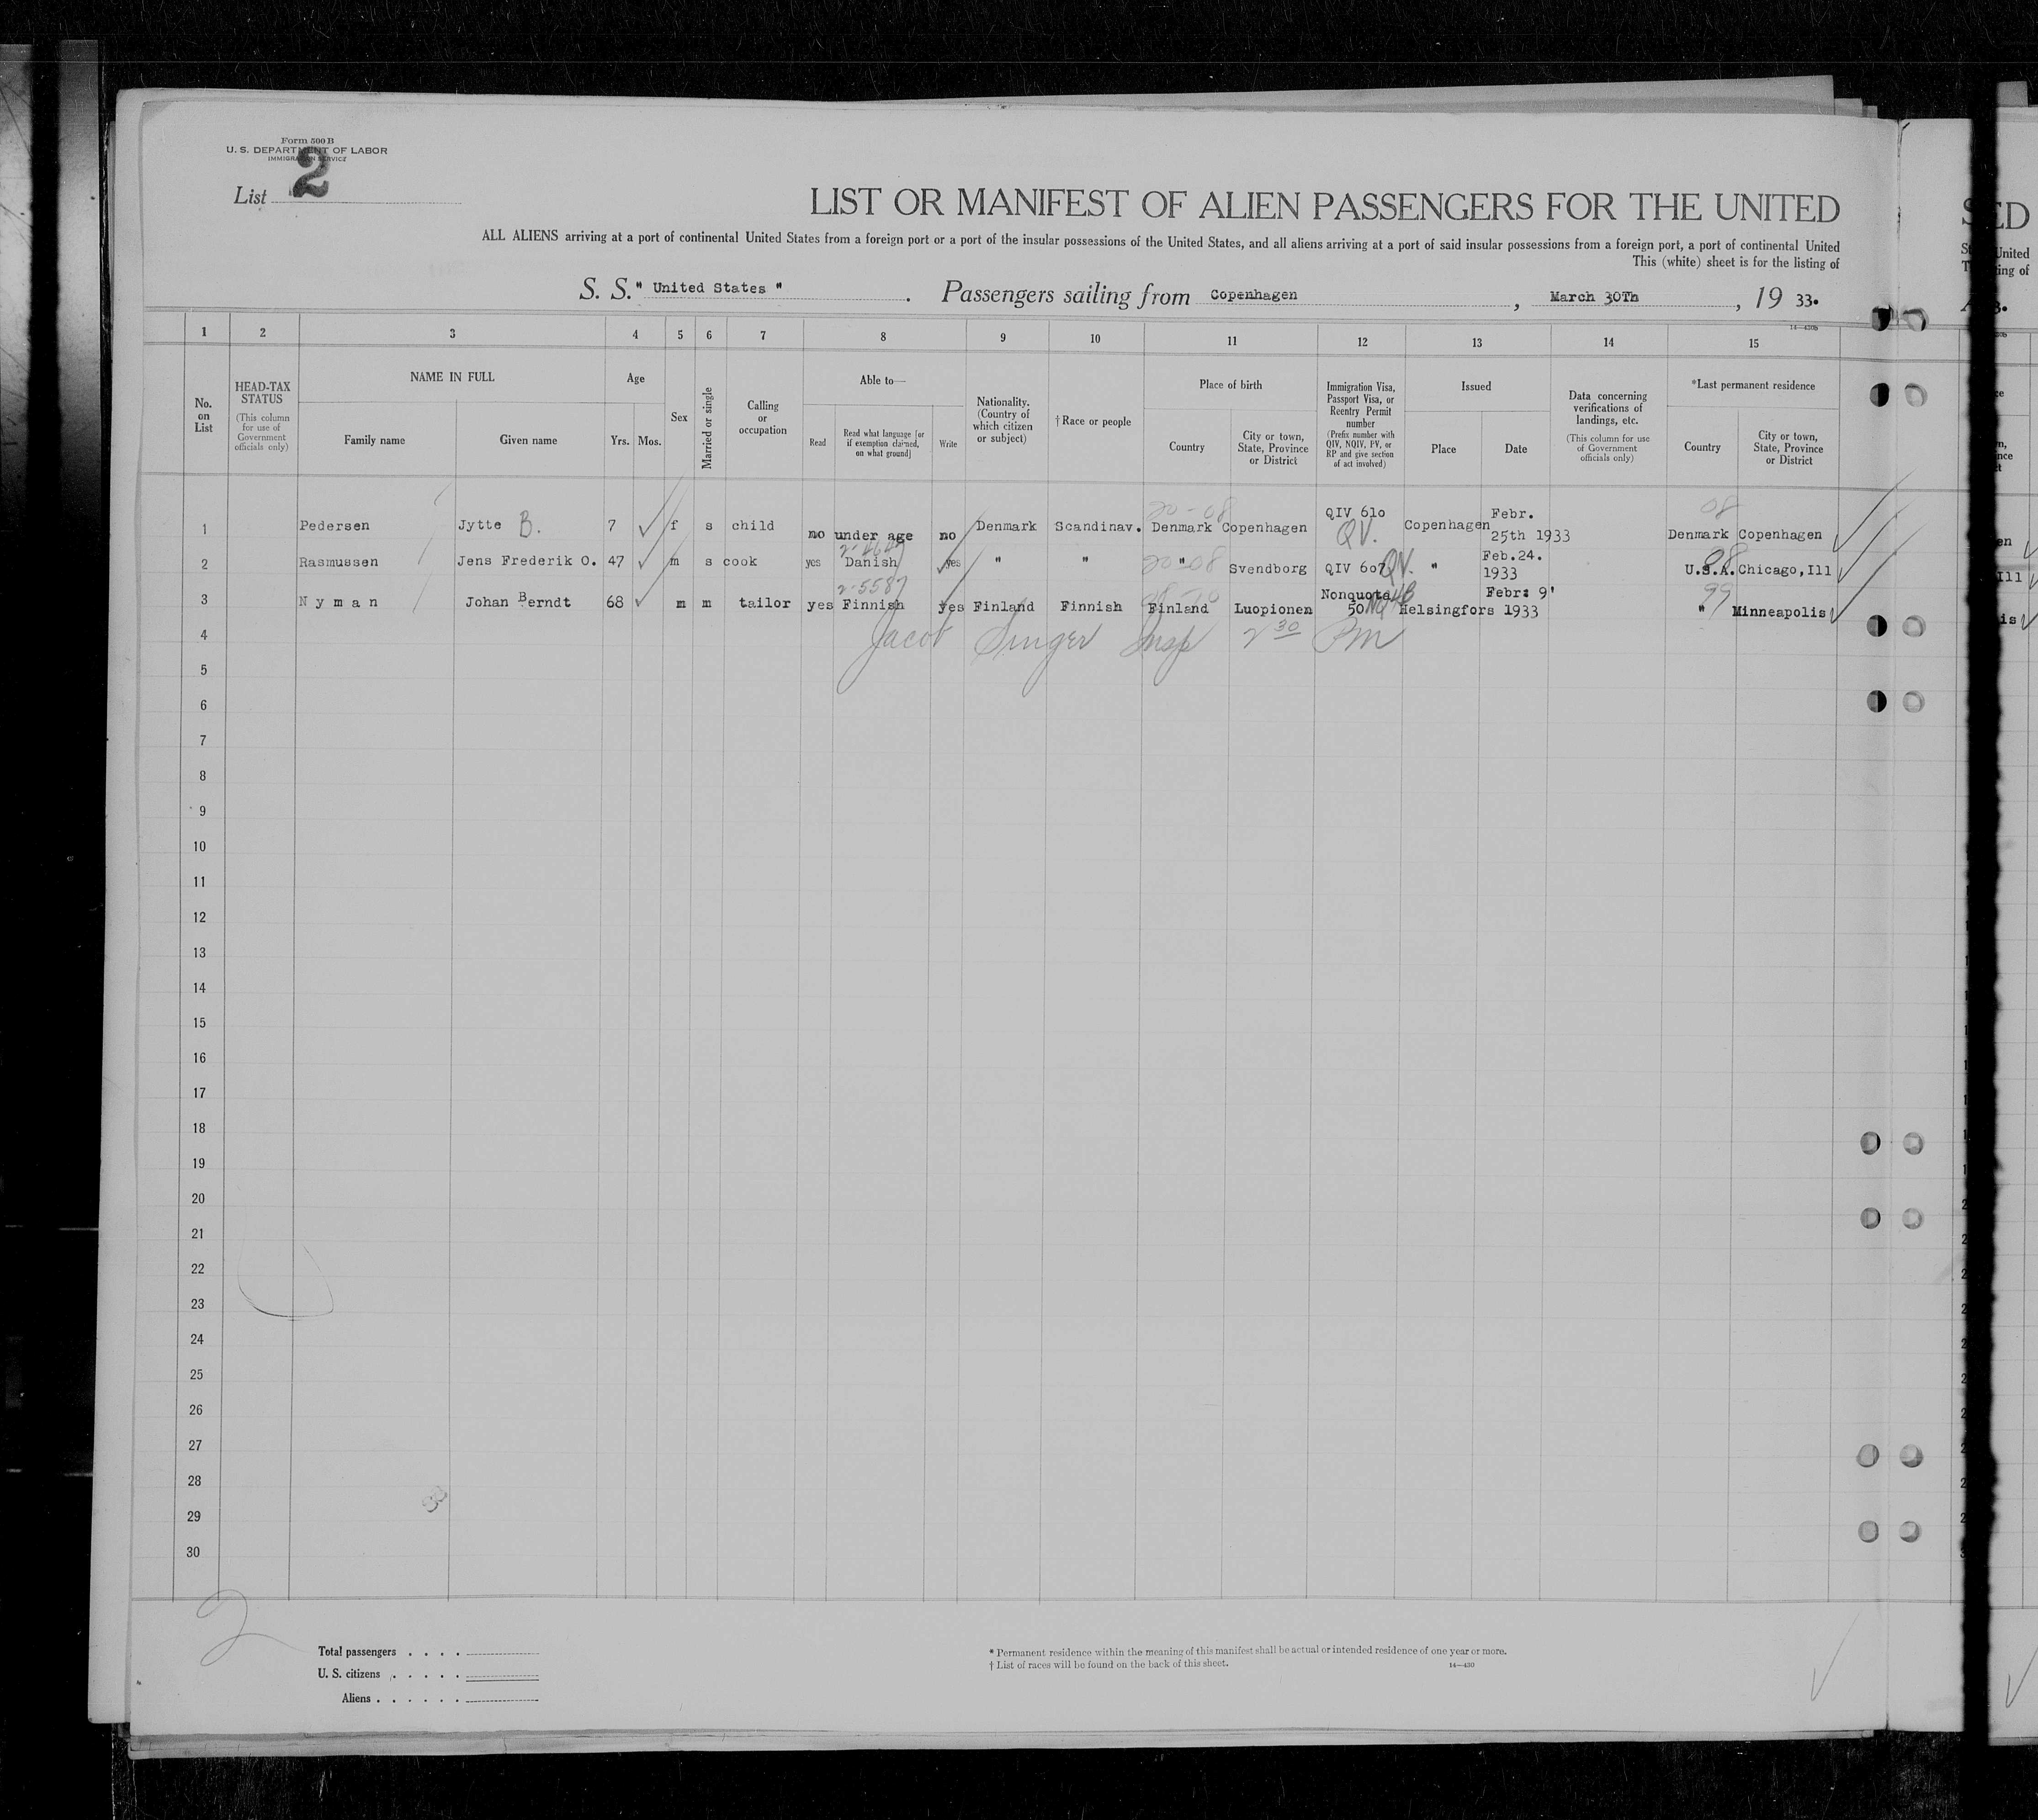 Form 500 B
U. S. DEPARTMENT OF LABOR
IMMIGRATION SERVICE
List 2
LIST OR MANIFEST OF ALIEN PASSENGERS FOR THE UNITED
ALL ALIENS arriving at a port of continental United States from a foreign port or a port of the insular possessions of the United States, and all aliens arriving at a port of said insular possessions from a foreign port, a port of continental United
This (white) sheet is for the listing of
S. S. " United States " . Passengers sailing from Copenhagen , March 30Th , 19 33.
1 2 3 4 5 6 7 8 9 10 11 12 13 14 15
No. on List
HEAD-TAX STATUS (This column for use of Government officials only)
NAME IN FULL
Family name Given name
Age
Yrs. Mos.
Sex
Married or single
Calling or occupation
Able to—
Read
Read what language [or if exemption claimed, on what ground]
Write
Nationality. (Country of which citizen or subject)
† Race or people
Place of birth
Country
City or town, State, Province or District
Immigration Visa, Passport Visa, or Reentry Permit number (Prefix number with QIV, NQIV, PV, or RP and give section of act involved)
Issued
Place Date
Data concerning verifications of landings, etc. (This column for use of Government officials only)
*Last permanent residence
Country
City or town, State, Province or District
1 Pedersen Jytte B. 7 f s child no under age no Denmark Scandinav. Denmark Copenhagen QIV 610 QV. Copenhagen Febr. 25th 1933 Denmark Copenhagen
2 Rasmussen Jens Frederik O. 47 m s cook yes Danish yes " " " Svendborg QIV 607 QV. " Feb.24. 1933 U.S.A. Chicago, Ill
3 Nyman Johan Berndt 68 m m tailor yes Finnish yes Finland Finnish Finland Luopionen Nonquota 50 Helsingfors Febr: 9' 1933 " Minneapolis
4 Jacob Singer Insp 2 30 PM
5
6
7
8
9
10
11
12
13
14
15
16
17
18
19
20
21
22
23
24
25
26
27
28
29
30
2
Total passengers
U. S. citizens
Aliens
* Permanent residence within the meaning of this manifest shall be actual or intended residence of one year or more.
† List of races will be found on the back of this sheet.
14—430